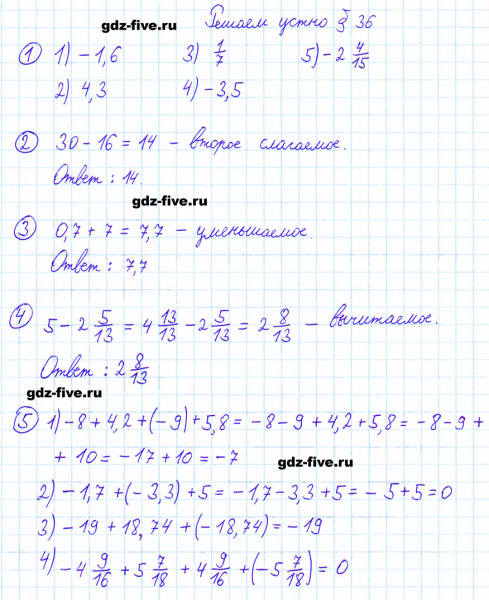 gdz-five.ru
Решаем устно § 36
① 1) -1,6 3) 1/7 5) -2 4/15
2) 4,3 4) -3,5
② 30 - 16 = 14 - второе слагаемое.
Ответ: 14.
gdz-five.ru
③ 0,7 + 7 = 7,7 - уменьшаемое.
Ответ: 7,7
④ 5 - 2 5/13 = 4 13/13 - 2 5/13 = 2 8/13 - вычитаемое.
Ответ: 2 8/13
gdz-five.ru
⑤ 1) -8 + 4,2 + (-9) + 5,8 = -8 - 9 + 4,2 + 5,8 = -8 - 9 +
+ 10 = -17 + 10 = -7
gdz-five.ru
2) -1,7 + (-3,3) + 5 = -1,7 - 3,3 + 5 = -5 + 5 = 0
3) -19 + 18,74 + (-18,74) = -19
4) -4 9/16 + 5 7/18 + 4 9/16 + (-5 7/18) = 0